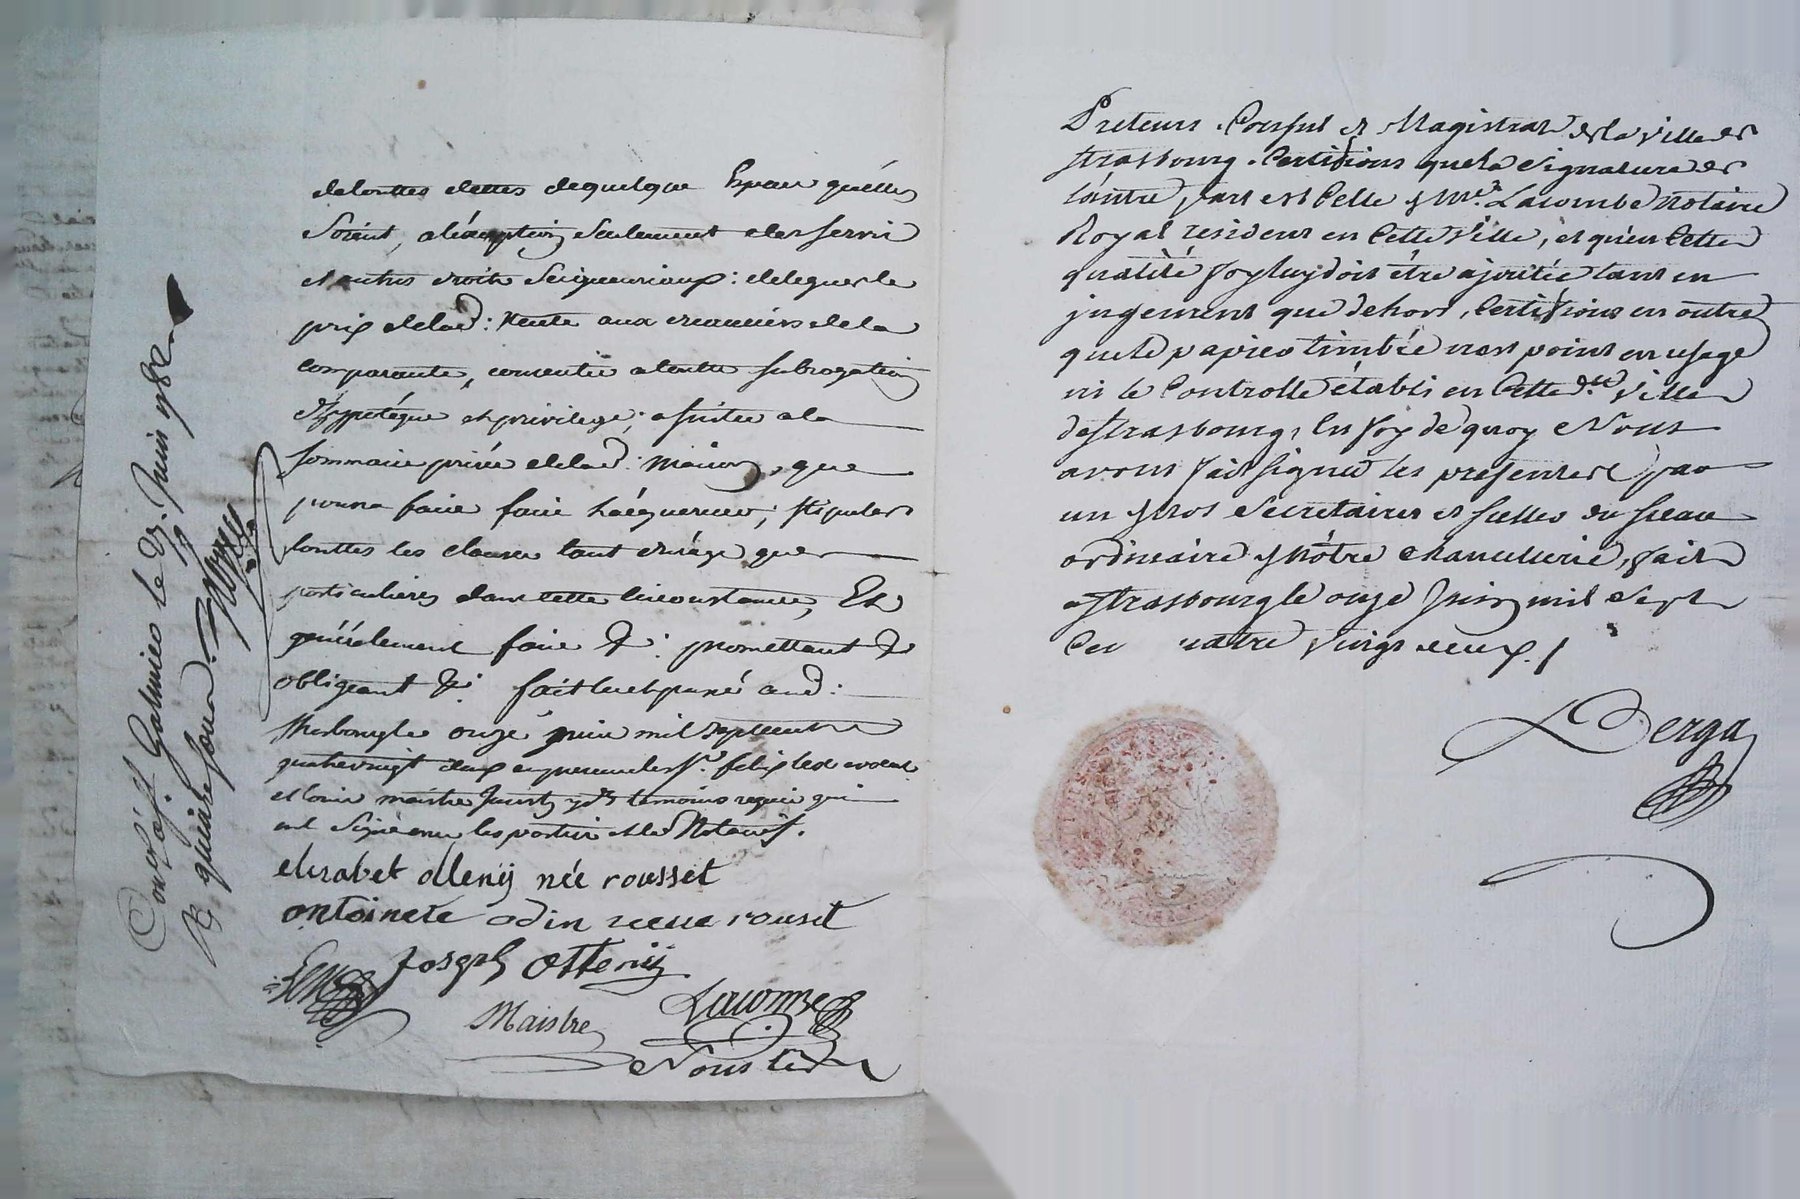 de touttes dettes de quelque Espece qu'elles
Soient, a l'exception Seulement des servis
et autres droits Seigneuriaux : deleguer le
prix de lad: Vente aux creanciers de la
comparante, consentir a toutte subrogation
d'hypoteque et privilege; a suitte a la
sommaire prisée de lad: Maison, que
pourra faire faire l'acquereur; stipuler
touttes les clauses tant d'usage que
particulieres dans cette circonstance, Et
généralement faire &: promettant &
obligeant &: fait lu et passé aud:
Strasbourg le onze juin mil sept cent
quatrevingt deux en presence des Sr. felix
et louis maistre temoins requis qui
ont Signé avec les parties et les Notaires.
elisabet otteny née rousset
antoinete odin veuve rouset
Joseph otteny
Maistre
Lacombe
Controllé a St Galmier le Juin 1782
R quinze sous.
Preteurs. Consul et Magistrat de la Ville de
Strasbourg. Certifions que la Signature de
l'autre part est Celle de Mre. Lacombe Notaire
Royal resident en Cette Ville, et qu'en Cette
qualité foy luy doit étre ajoutée tant en
jugement que dehors, Certifions en outre
que le papier timbré n'est point en usage
ni le Controlle établi en Cette dite. Ville
de Strasbourg, En foy de quoy Nous
avons fait signer les presentes par
un de nos Secretaires et sceller du sceau
ordinaire de Nôtre Chancellerie, fait
a Strasbourg le onze Juin mil Sept
Cen uatre Vingt deux./